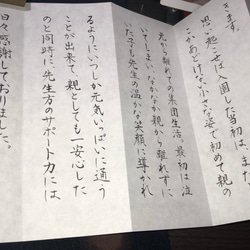 きます。
思い起こせば入園した当初は、まだ
あどけない小さな姿で初めて親の
元から離れての集団生活、最初は泣
いてしまい、なかなか親から離れずに
いた子も先生の温かな笑顔に導かれ
るようにいつしか元気いっぱいに通う
ことが出来て、親としても一安心した
のと同時に、先生方のサポート力には
日々感謝しておりました。